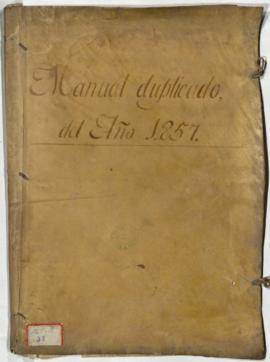 Manual duplicado,
del Año 1.857.